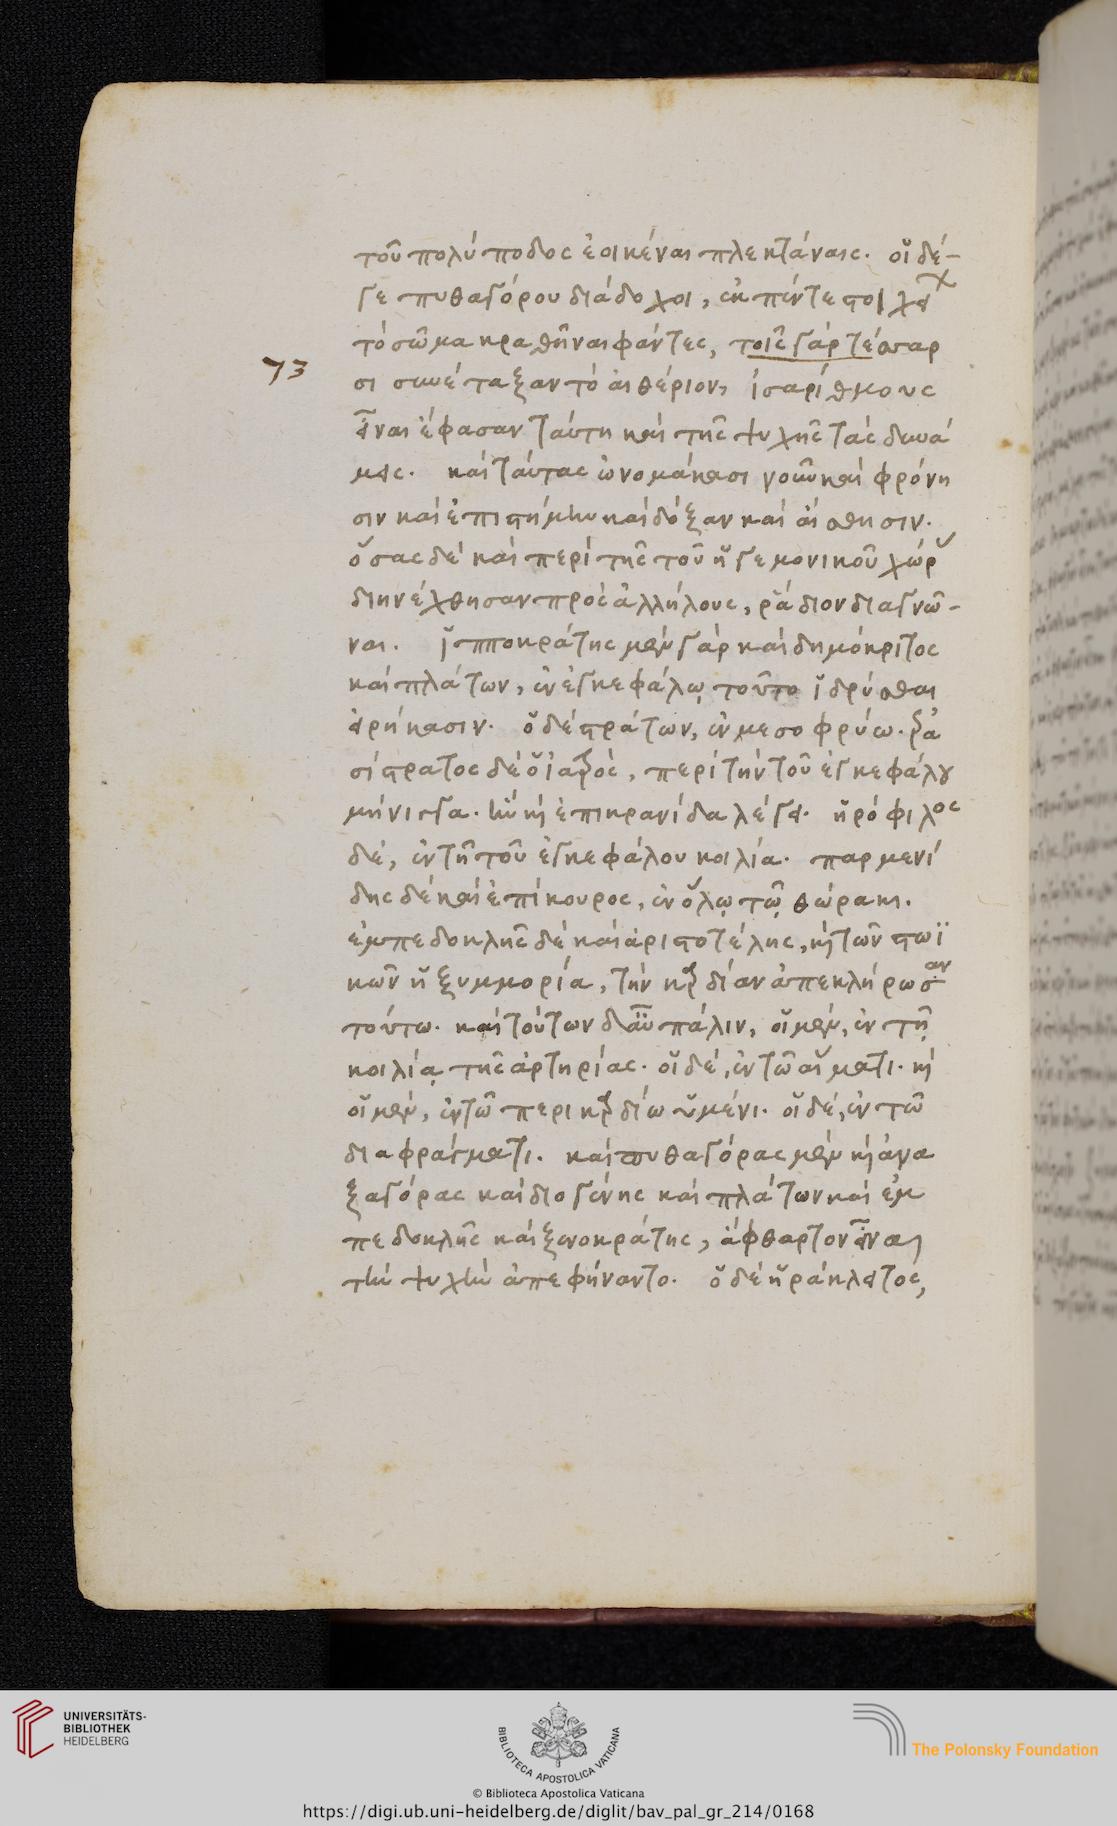 τοῦ πολύποδος ἐοικέναι πλεκτάναις. οἱ δέ-
γε πυθαγόρου διάδοχοι, ἐκ πέντε στοιχείων
τὸ σῶμα κραθῆναι φάντες, τοῖς γὰρ τέσσαρ
73
σι συνέταξαν τὸ αἰθέριον, ἰσαρίθμους
εἶναι ἔφασαν ταύτη καὶ τῆς ψυχῆς τὰς δυνά
μεις. καὶ ταύτας ὠνομάκασι νοῦν καὶ φρόνη
σιν καὶ ἐπιστήμην καὶ δόξαν καὶ αἴσθησιν.
ὅσα δὲ καὶ περὶ τῆς τοῦ ἡγεμονικοῦ χώρ
διηνέχθησαν πρὸς ἀλλήλους, ῥάδιον διαγνῶ-
ναι. ἱπποκράτης μὲν γὰρ καὶ δημόκριτος
καὶ πλάτων, ἐν ἐγκεφάλῳ τοῦτο ἱδρύσθαι
εἰρήκασιν. ὁ δὲ στράτων, ἐν μεσοφρύω. ἐρα
σίστρατος δὲ ὁ ἰατρὸς, περὶ τὴν τοῦ ἐγκεφάλου
μήνιγγα. ἣν καὶ ἐπικρανίδα λέγει. ἡρόφιλος
δὲ, ἐν τῆ τοῦ ἐγκεφάλου κοιλία. παρμενί
δης δὲ καὶ ἐπίκουρος, ἐν ὅλῳ τῷ θώρακι.
ἐμπεδοκλῆς δὲ καὶ ἀριστοτέλης, καὶ τῶν στωϊ
κῶν ἡ ξυμμορία, τὴν καρδίαν ἀπεκλήρωσαν
τούτω. καὶ τούτων δ᾽ αὖ πάλιν, οἱ μὲν, ἐν τῇ
κοιλίᾳ τῆς ἀρτηρίας. οἱ δὲ, ἐν τῶ αἵματι. καὶ
οἱ μὲν, ἐν τῶ περικαρδίω ὑμένι. οἱ δὲ, ἐν τῶ
διαφράγματι. καὶ πυθαγόρας μὲν καὶ ἀνα
ξαγόρας καὶ διογένης καὶ πλάτων καὶ ἐμ
πεδοκλῆς καὶ ξενοκράτης, ἄφθαρτον εἶναι
τὴν ψυχὴν ἀπεφήναντο. ὁ δὲ ἡράκλειτος,
UNIVERSITÄTS-
BIBLIOTHEK
HEIDELBERG
BIBLIOTECA APOSTOLICA VATICANA
The Polonsky Foundation
© Biblioteca Apostolica Vaticana
https://digi.ub.uni-heidelberg.de/diglit/bav_pal_gr_214/0168